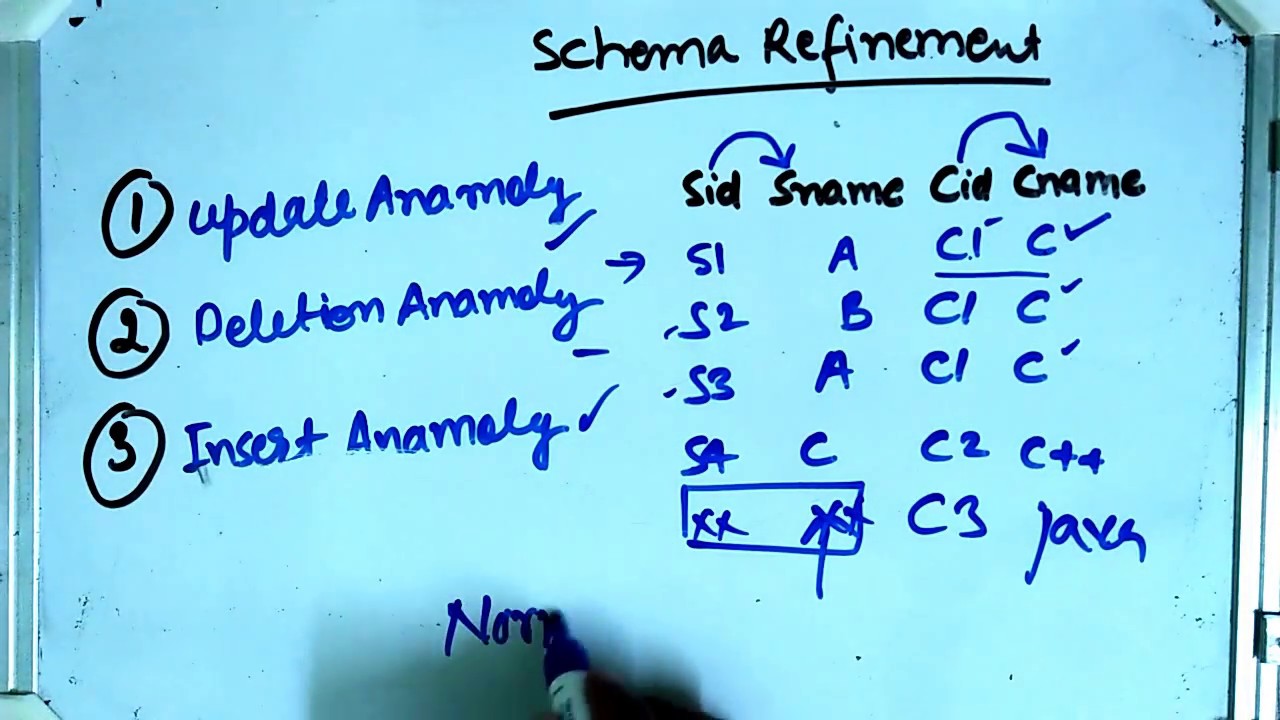 Schema Refinement
① Update Anamoly ✓
② Deletion Anamoly –
③ Insert Anamoly ✓
Sid Sname Cid Cname
→ S1 A C1 C ✓
S2 B C1 C ✓
S3 A C1 C ✓
S4 C C2 C++
xx xx C3 Java
Nor